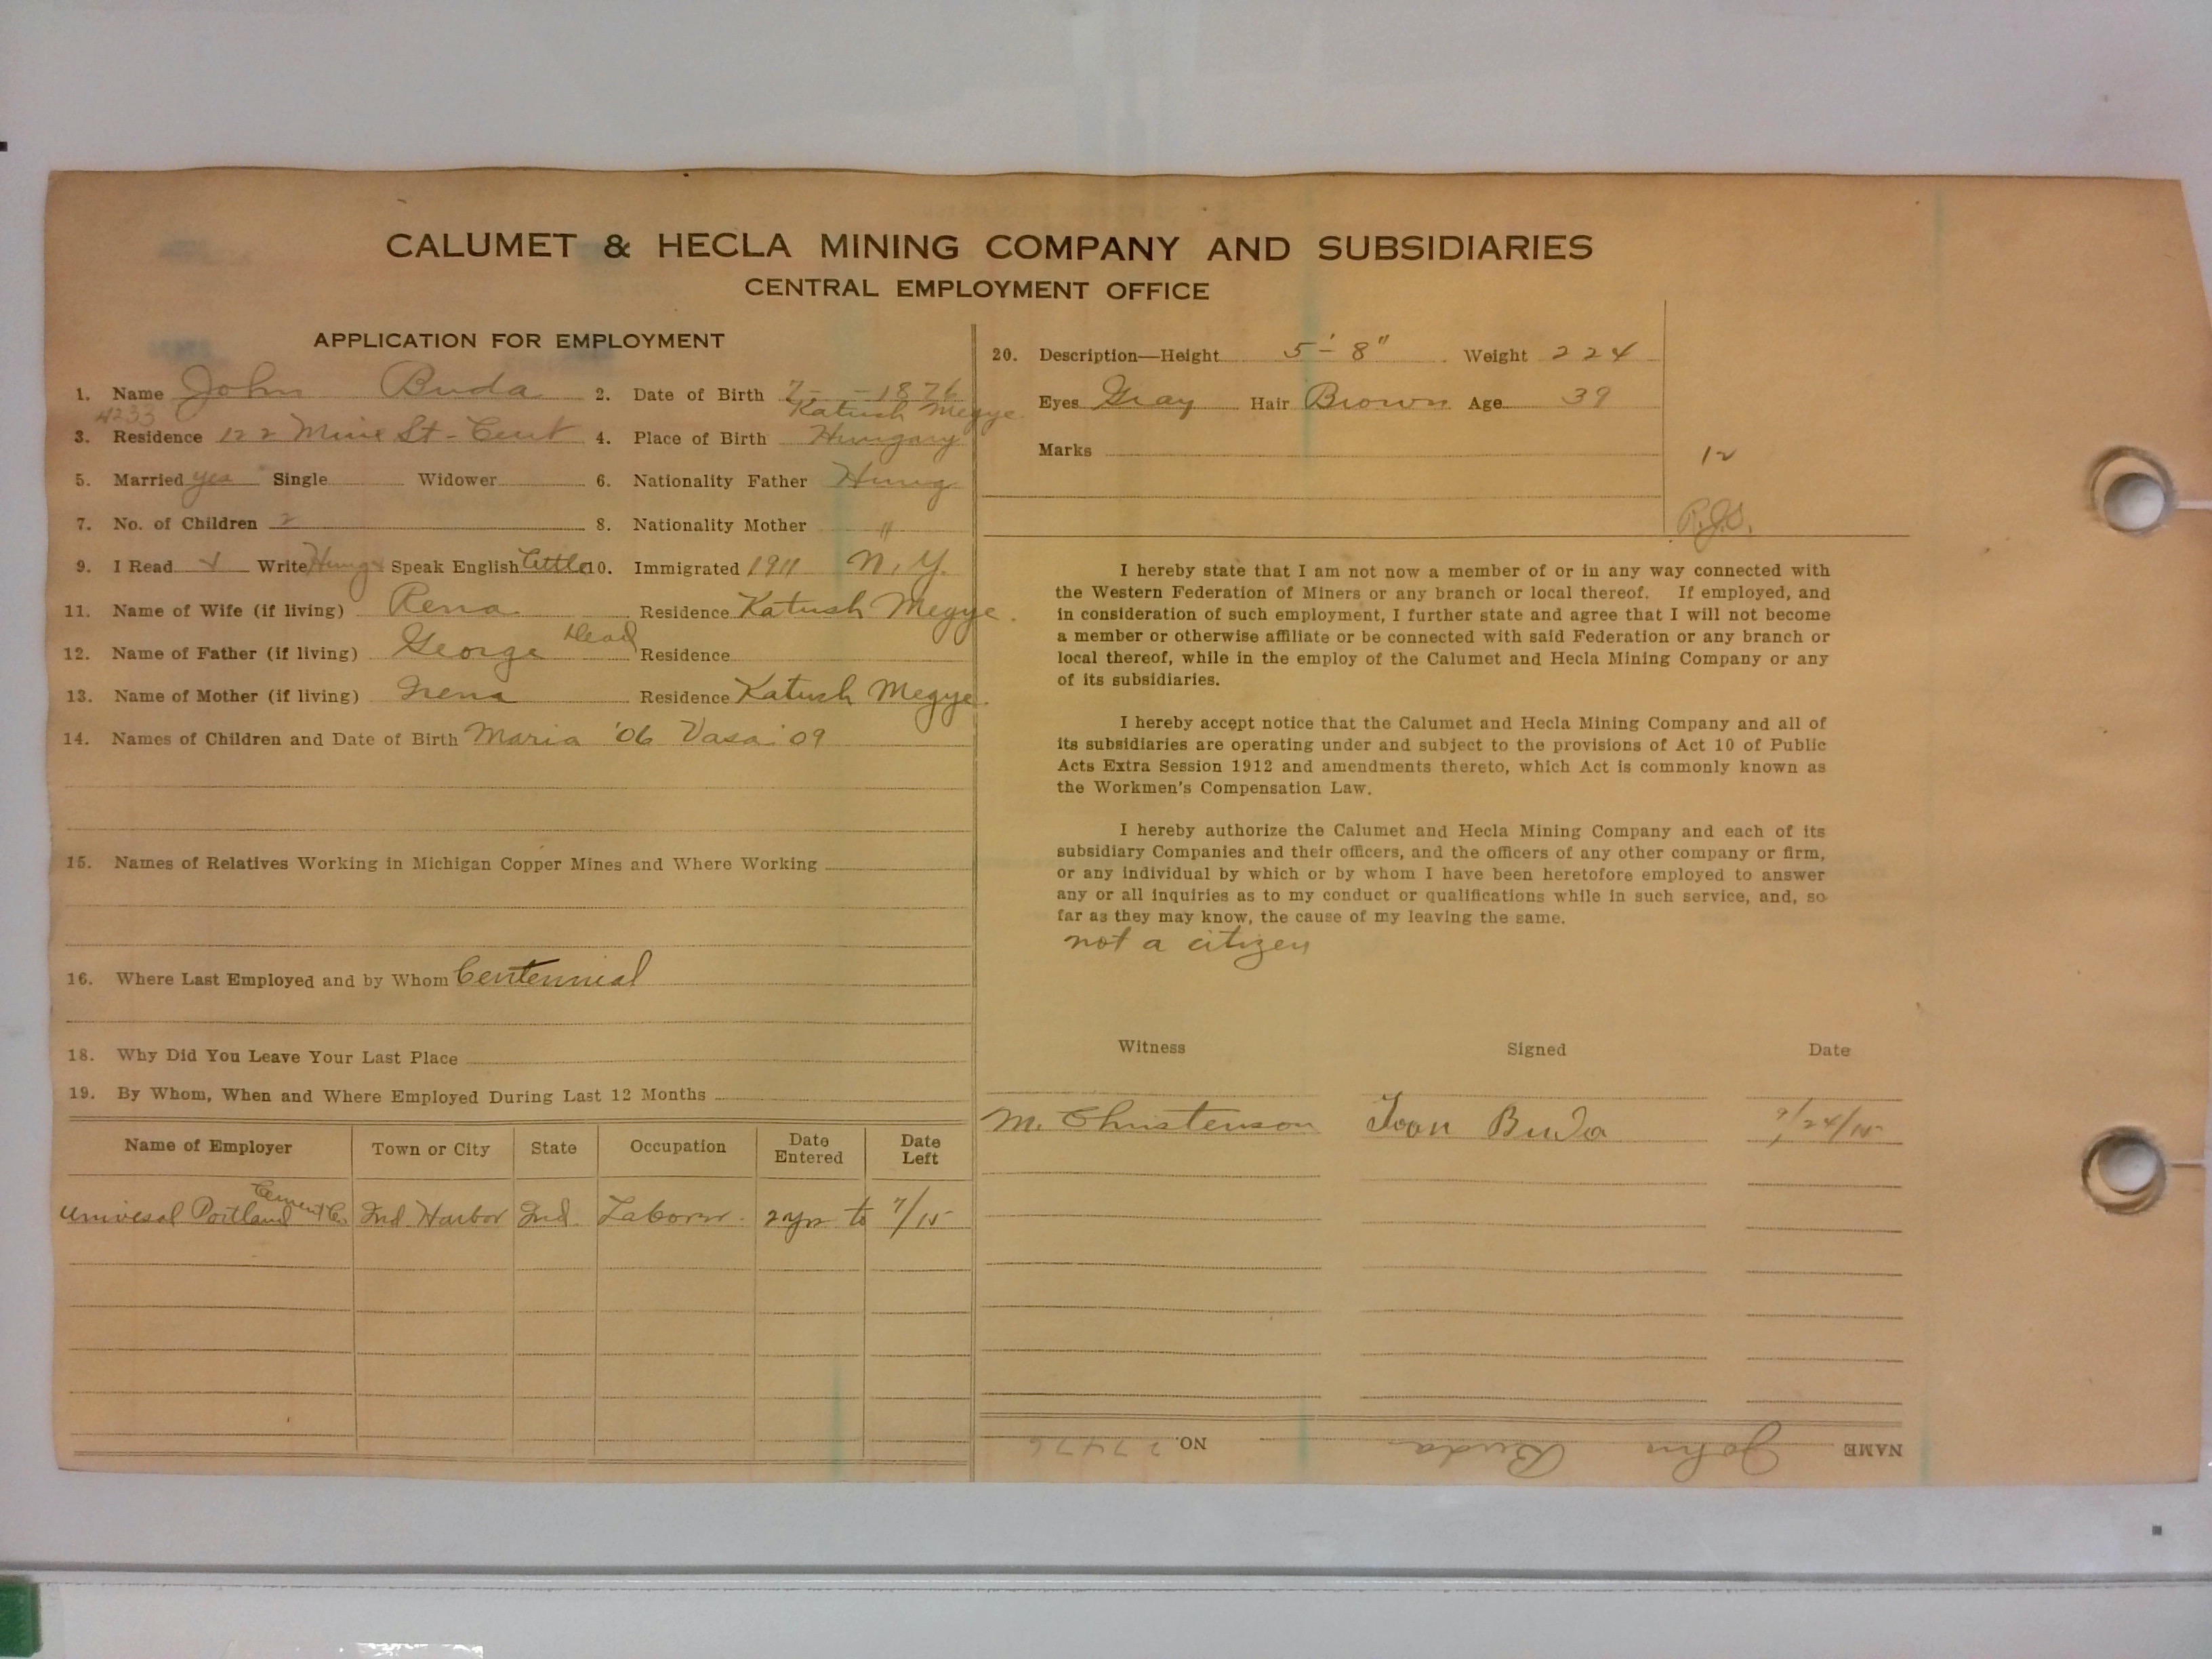 CALUMET & HECLA MINING COMPANY AND SUBSIDIARIES
CENTRAL EMPLOYMENT OFFICE
APPLICATION FOR EMPLOYMENT
1. Name John Buda 2. Date of Birth 7- -1876
4233 Katush Megye
3. Residence 122 Mine St - Cent 4. Place of Birth Hungary
5. Married yes Single Widower 6. Nationality Father Hung
7. No. of Children 2 8. Nationality Mother "
9. I Read Write Hung Speak English Little 10. Immigrated 1911 N.Y.
11. Name of Wife (if living) Rena Residence Katush Megye.
12. Name of Father (if living) George Dead Residence
13. Name of Mother (if living) Irena Residence Katush Megye.
14. Names of Children and Date of Birth Maria '06 Vasa '09
15. Names of Relatives Working in Michigan Copper Mines and Where Working
16. Where Last Employed and by Whom Centennial
18. Why Did You Leave Your Last Place
19. By Whom, When and Where Employed During Last 12 Months
Name of Employer Town or City State Occupation Date Entered Date Left
Univesal Portland Cement Co Ind. Harbor Ind. Laborer. 2 yrs to 7/15
20. Description—Height 5'-8" Weight 224
Eyes Gray Hair Brown Age 39
Marks
12
R.J.S.
I hereby state that I am not now a member of or in any way connected with
the Western Federation of Miners or any branch or local thereof. If employed, and
in consideration of such employment, I further state and agree that I will not become
a member or otherwise affiliate or be connected with said Federation or any branch or
local thereof, while in the employ of the Calumet and Hecla Mining Company or any
of its subsidiaries.
I hereby accept notice that the Calumet and Hecla Mining Company and all of
its subsidiaries are operating under and subject to the provisions of Act 10 of Public
Acts Extra Session 1912 and amendments thereto, which Act is commonly known as
the Workmen's Compensation Law.
I hereby authorize the Calumet and Hecla Mining Company and each of its
subsidiary Companies and their officers, and the officers of any other company or firm,
or any individual by which or by whom I have been heretofore employed to answer
any or all inquiries as to my conduct or qualifications while in such service, and, so
far as they may know, the cause of my leaving the same.
not a citizen
Witness Signed Date
M. Christenson Ioan Buda 9/24/15
NAME John Buda NO. 27476